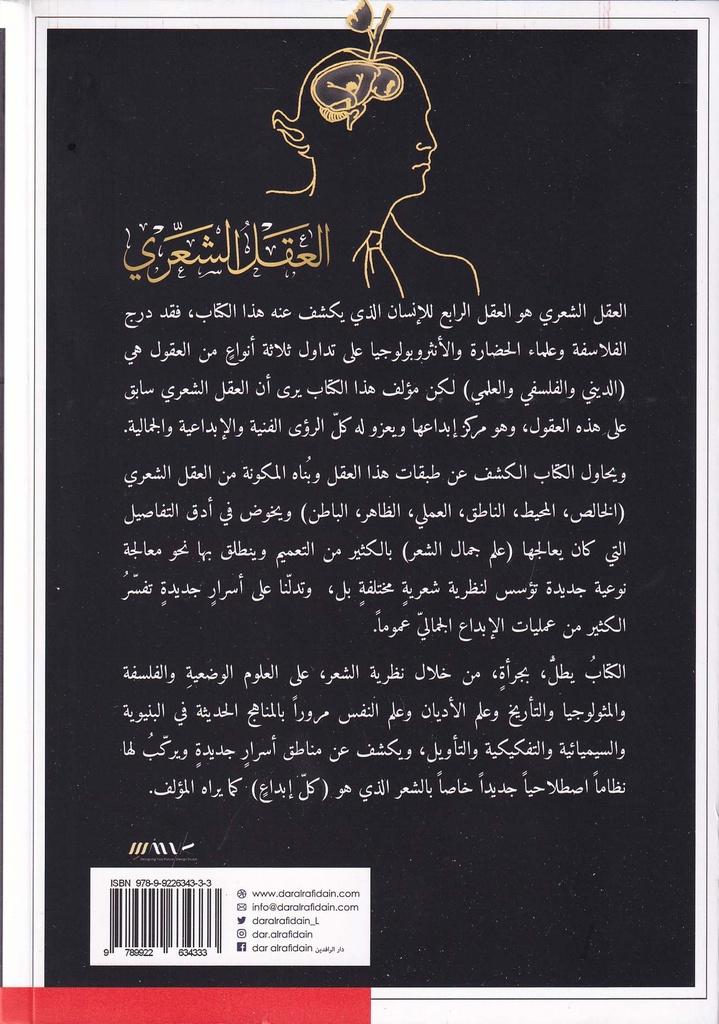 العقل الشعري
العقل الشعري هو العقل الرابع للإنسان الذي يكشف عنه هذا الكتاب، فقد درج
الفلاسفة وعلماء الحضارة والأنثروبولوجيا على تداول ثلاثة أنواعٍ من العقول هي
(الديني والفلسفي والعلمي) لكن مؤلف هذا الكتاب يرى أن العقل الشعري سابق
على هذه العقول، وهو مركز إبداعها ويعزو له كلّ الرؤى الفنية والإبداعية والجمالية.
ويحاول الكتاب الكشف عن طبقات هذا العقل وبُناه المكونة من العقل الشعري
(الخالص، المحيط، الناطق، العملي، الظاهر، الباطن) ويخوض في أدق التفاصيل
التي كان يعالجها (علم جمال الشعر) بالكثير من التعميم وينطلق بها نحو معالجة
نوعية جديدة تؤسس لنظرية شعريةٍ مختلفةٍ بل، وتدلّنا على أسرارٍ جديدةٍ تفسّرُ
الكثير من عمليات الإبداع الجماليّ عموماً.
الكتابُ يطلُّ، بجرأةٍ، من خلال نظرية الشعر، على العلوم الوضعيةِ والفلسفة
والمثولوجيا والتأريخ وعلم الأديان وعلم النفس مروراً بالمناهج الحديثة في البنيوية
والسيميائية والتفكيكية والتأويل، ويكشف عن مناطق أسرارٍ جديدةٍ ويركّبُ لها
نظاماً اصطلاحياً جديداً خاصاً بالشعر الذي هو (كلّ إبداعٍ) كما يراه المؤلف.
ISBN 978-9-9226343-3-3
9 789922 634333
www.daralrafidain.com
info@daralrafidain.com
daralrafidain_L
dar.alrafidain
dar alrafidain دار الرافدين